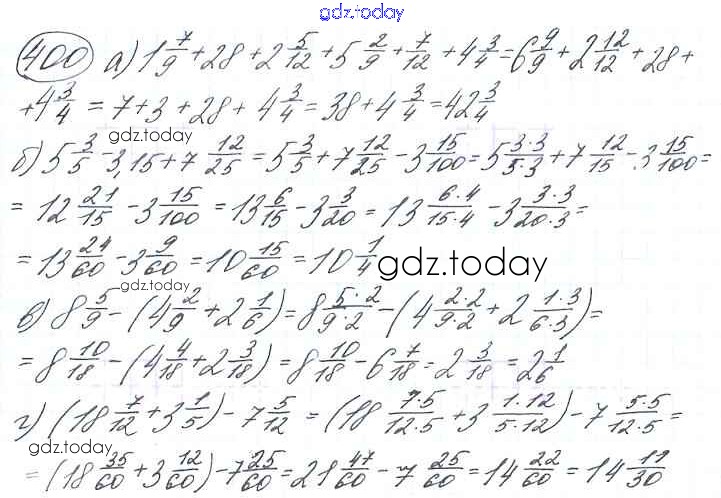 gdz.today
400 а) 1 7/9 + 28 + 2 5/12 + 5 2/9 + 7/12 + 4 3/4 = 6 9/9 + 2 12/12 + 28 +
+ 4 3/4 = 7 + 3 + 28 + 4 3/4 = 38 + 4 3/4 = 42 3/4
gdz.today
б) 5 3/5 - 3,15 + 7 12/25 = 5 3/5 + 7 12/25 - 3 15/100 = 5 3·3/5·3 + 7 12/15 - 3 15/100 =
= 12 21/15 - 3 15/100 = 13 6/15 - 3 3/20 = 13 6·4/15·4 - 3 3·3/20·3 =
= 13 24/60 - 3 9/60 = 10 15/60 = 10 1/4
gdz.today
gdz.today
в) 8 5/9 - (4 2/9 + 2 1/6) = 8 5·2/9·2 - (4 2·2/9·2 + 2 1·3/6·3) =
= 8 10/18 - (4 4/18 + 2 3/18) = 8 10/18 - 6 7/18 = 2 3/18 = 2 1/6
г) (18 7/12 + 3 1/5) - 7 5/12 = (18 7·5/12·5 + 3 1·12/5·12) - 7 5·5/12·5 =
gdz.today
= (18 35/60 + 3 12/60) - 7 25/60 = 21 47/60 - 7 25/60 = 14 22/60 = 14 11/30